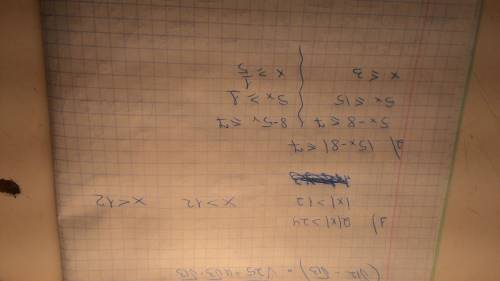 1) 2|x| > 24
|x| > 12 x > 12 x < 12
2) |5x-8| ≤ 7
5x-8 ≤ 7 8-5x ≤ 7
5x ≤ 15 5x ≥ 1
x ≤ 3 x ≥ 1/5